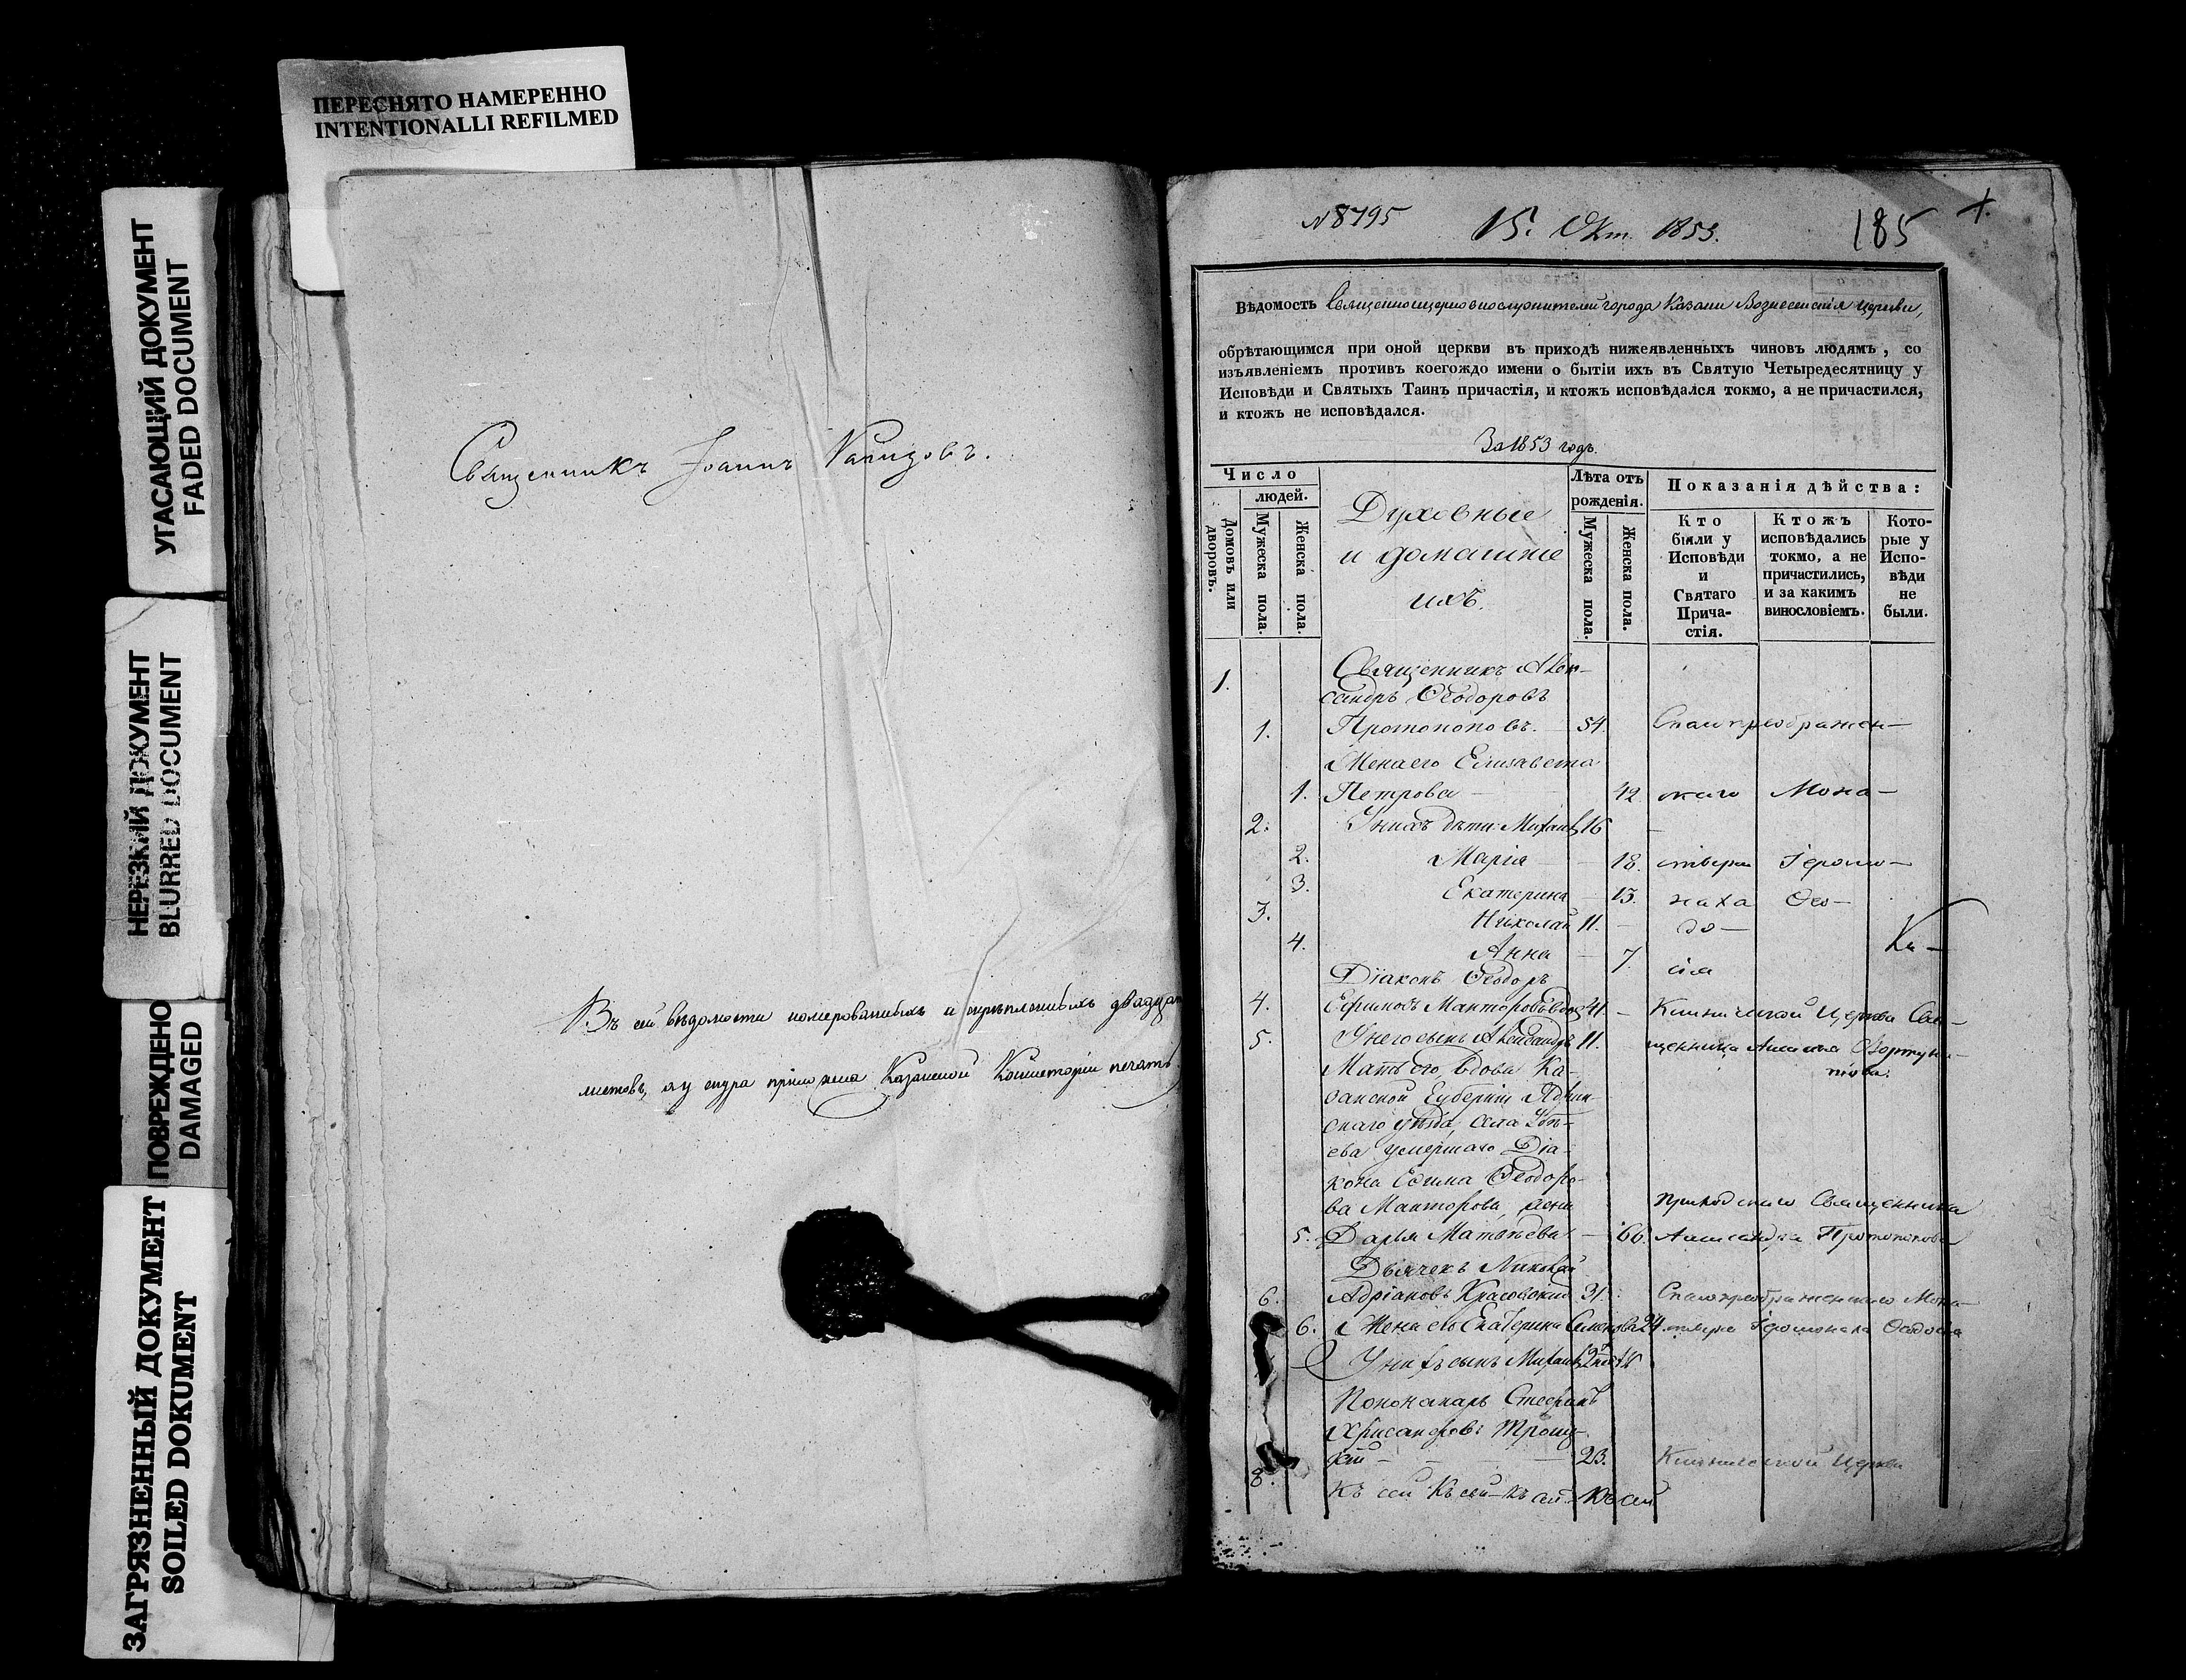 ПЕРЕСНЯТО НАМЕРЕННО
INTENTIONALLI REFILMED
УГАСАЮЩИЙ ДОКУМЕНТ
FADED DOCUMENT
НЕРЕЗКИЙ ДОКУМЕНТ
BLURRED DOCUMENT
ПОВРЕЖДЕНО
DAMAGED
ЗАГРЯЗНЕННЫЙ ДОКУМЕНТ
SOILED DOKUMENT
Священникъ Іоаннъ
Въ сей вѣдомости номерованныхъ и скрѣпленныхъ двадцать
листовъ, а у снура приложена Казанской Консисторіи печать.
№ 8795
15. Окт. 1853.
185
Вѣдомость Священноицерковнослужителей города Казани Вознесенскія церкви,
обрѣтающимся при оной церкви въ приходѣ нижеявленныхъ чиновъ людямъ, со
изъявленіемъ противъ коегождо имени о бытіи ихъ въ Святую Четыредесятницу у
Исповѣди и Святыхъ Таинъ причастія, и ктожъ исповѣдался токмо, а не причастился,
и ктожъ не исповѣдался.
За 1853 годъ.
Число
людей.
Домовъ или дворовъ.
Мужеска пола.
Женска пола.
Духовные
и домашніе
ихъ.
Лѣта отъ
рожденія.
Мужеска пола.
Женска пола.
Показанія дѣйства:
Кто
были у
Исповѣди
и
Святаго
Прича-
стія.
Ктожъ
исповѣдались
токмо, а не
причастились,
и за какимъ
винословіемъ.
Кото-
рые у
Испо-
вѣди
не
были.
1. Священникъ Алек-
сандръ Ѳеодоровъ
1. Протопоповъ. 54. Спасопреображен-
Жена его Елисавета
1. Петрова 42 скаго Мона-
2. У нихъ дѣти Михаилъ 16
2. Марія 18. стыря Іеромо-
3. Екатерина 13. наха Ѳео-
3. Николай 11. до-
4. Анна 7. сія
Ка-
Діаконъ Ѳеодоръ
4. Ефимовъ Манторовъ вдовъ 41. Церкви Свя-
5. У него сынъ Александръ 11. щенника
Мать его, вдова Ка-
занской Губерніи
скаго уѣзда, села
ева умершаго Діа-
кона Ефима Ѳеодоро-
ва Манторова, жена Приходскаго Священника
5. Дарья Матвѣева 66. Александра Протопопова
Дьячекъ Николай
6. Адріановъ Красовскій 31. Спасопреображенскаго Мона-
6. Жена его Екатерина Семенова 24. стыря Іеромонаха Ѳеодосія
У нихъ сынъ Михаилъ
Пономарь Стефанъ
Хрисанфовъ Троиц-
8. кій 23. Церкви
Къ сей Къ сей Къ сей Къ сей